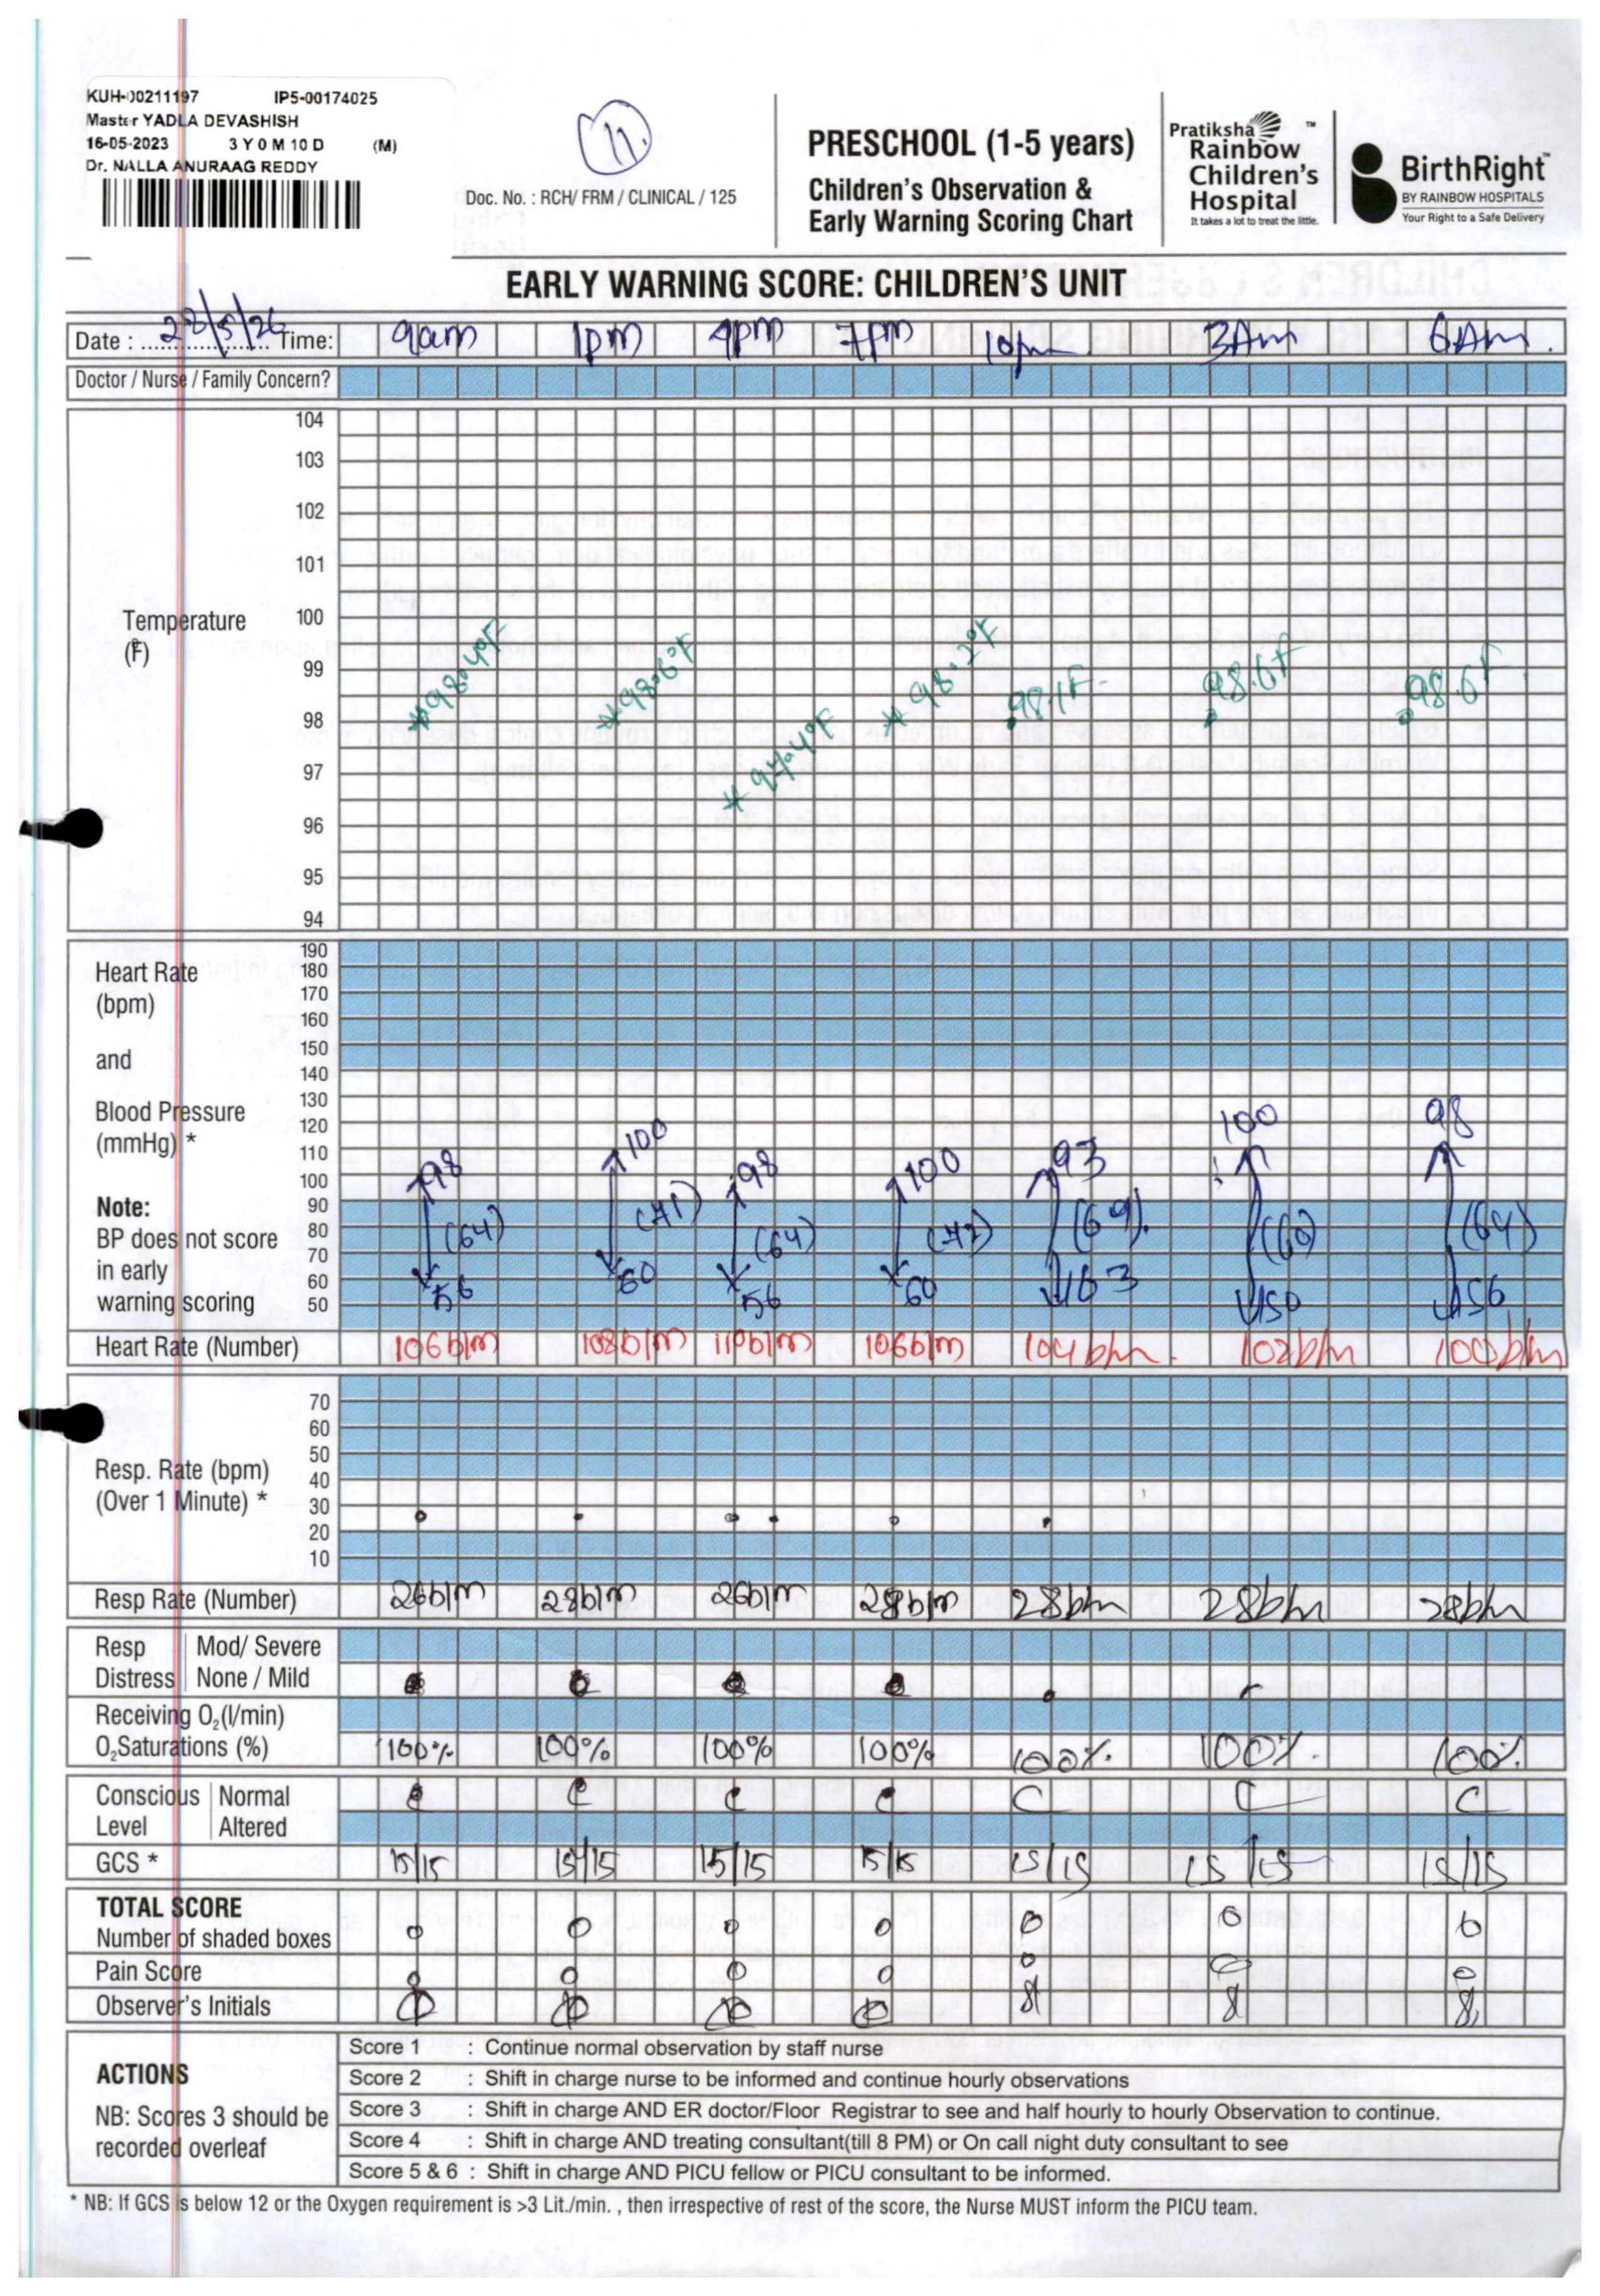 KUH-00211197 IP5-00174025
Master YADLA DEVASHISH
16-05-2023 3 Y 0 M 10 D (M)
Dr. NALLA ANURAAG REDDY
11.
Doc. No. : RCH/ FRM / CLINICAL / 125
PRESCHOOL (1-5 years)
Children's Observation &
Early Warning Scoring Chart
Pratiksha
Rainbow
Children's
Hospital
It takes a lot to treat the little.
BirthRight
BY RAINBOW HOSPITALS
Your Right to a Safe Delivery
EARLY WARNING SCORE: CHILDREN'S UNIT
Date : /5/26 Time: 9am 1pm 4pm 7pm 10pm 3Am 6Am.
Doctor / Nurse / Family Concern?
Temperature
(F)
104
103
102
101
100
99
98
97
96
95
94
98.4°F 98.6°F 98.2°F 98.1F. 98.6F 98.6F
Heart Rate
(bpm)
and
Blood Pressure
(mmHg) *
Note:
BP does not score
in early
warning scoring
190
180
170
160
150
140
130
120
110
100
90
80
70
60
50
98 100 98 100 93 100 98
(64) (71) (64) (72) (69). (64)
56 60 56 60 63 50 56
Heart Rate (Number) 106b/m 108b/m 110b/m 106b/m 104b/m. 102b/m 100b/m
Resp. Rate (bpm)
(Over 1 Minute) *
70
60
50
40
30
20
10
Resp Rate (Number) 26b/m 28b/m 26b/m 28b/m 28b/m 28b/m 28b/m
Resp Distress Mod/ Severe
None / Mild
Receiving O₂(l/min)
O₂Saturations (%) 100% 100% 100% 100% 100%. 100%. 100%
Conscious Level Normal C C C C C C C
Altered
GCS * 15/15 15/15 15/15 15/15 15/15 15/15 15/15
TOTAL SCORE
Number of shaded boxes 0 0 0 0 0 0 0
Pain Score 0 0 0 0 0 0 0
Observer's Initials
ACTIONS
NB: Scores 3 should be
recorded overleaf
Score 1 : Continue normal observation by staff nurse
Score 2 : Shift in charge nurse to be informed and continue hourly observations
Score 3 : Shift in charge AND ER doctor/Floor Registrar to see and half hourly to hourly Observation to continue.
Score 4 : Shift in charge AND treating consultant(till 8 PM) or On call night duty consultant to see
Score 5 & 6 : Shift in charge AND PICU fellow or PICU consultant to be informed.
* NB: If GCS is below 12 or the Oxygen requirement is >3 Lit./min. , then irrespective of rest of the score, the Nurse MUST inform the PICU team.